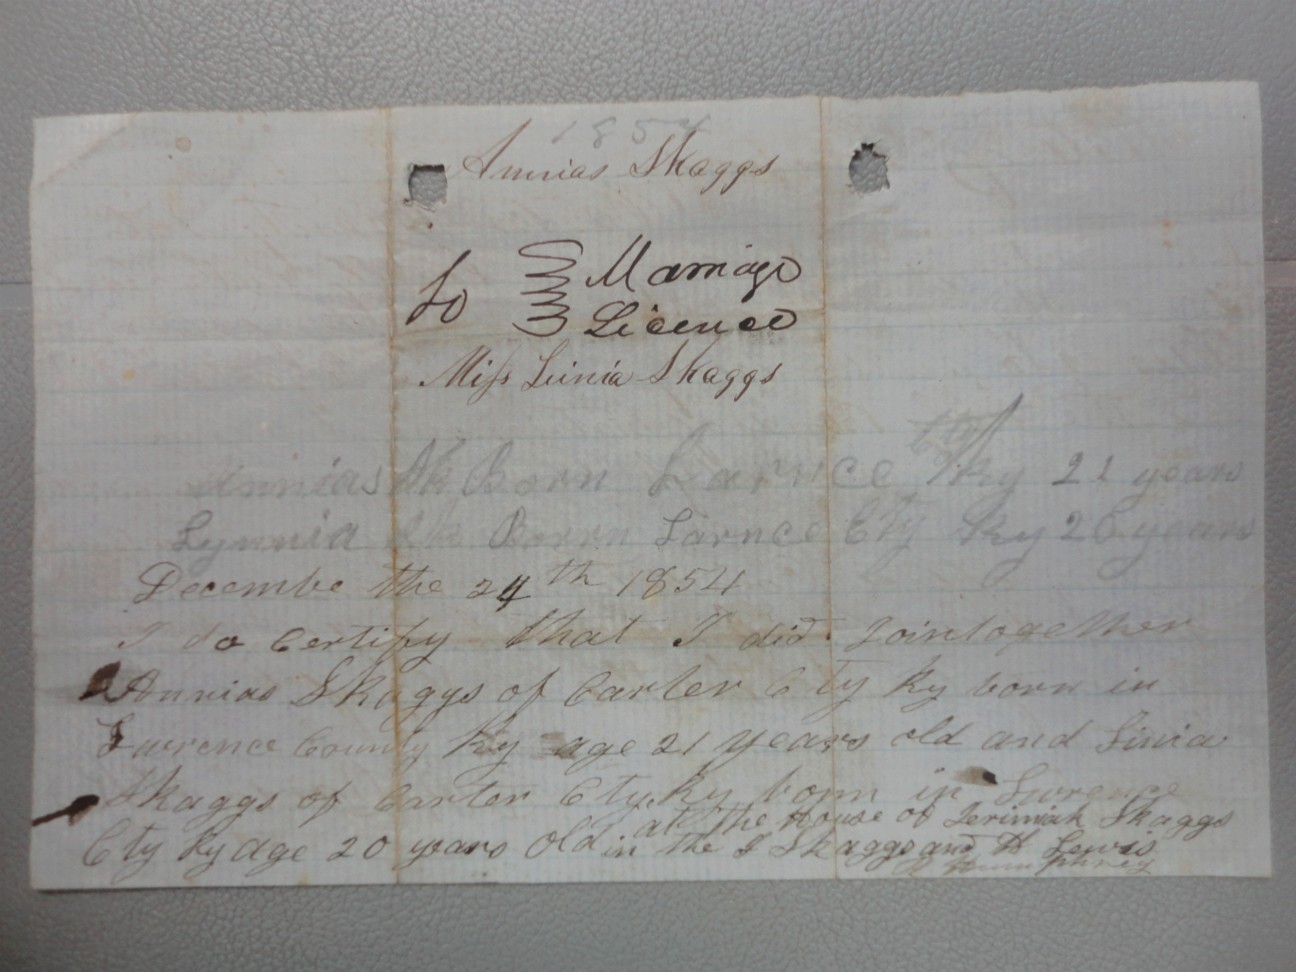 1854
Annias Skaggs
to Marriage
Licence
Miss Linia Skaggs
Annias Sk Born Larnce Cty Ky 21 years
Lynnia Sk Born Larnce Cty Ky 20 years
Decembe the 24th 1854
I do Certify that I did Jointogether
Annias Skaggs of Carter Cty Ky born in
Lawrence County Ky age 21 years old and Linia
Skaggs of Carter Cty Ky born in Lwrence
at the House of Jerimiah Skaggs
Cty Ky age 20 years old in the J Skaggs and H Lewis
Humphrey